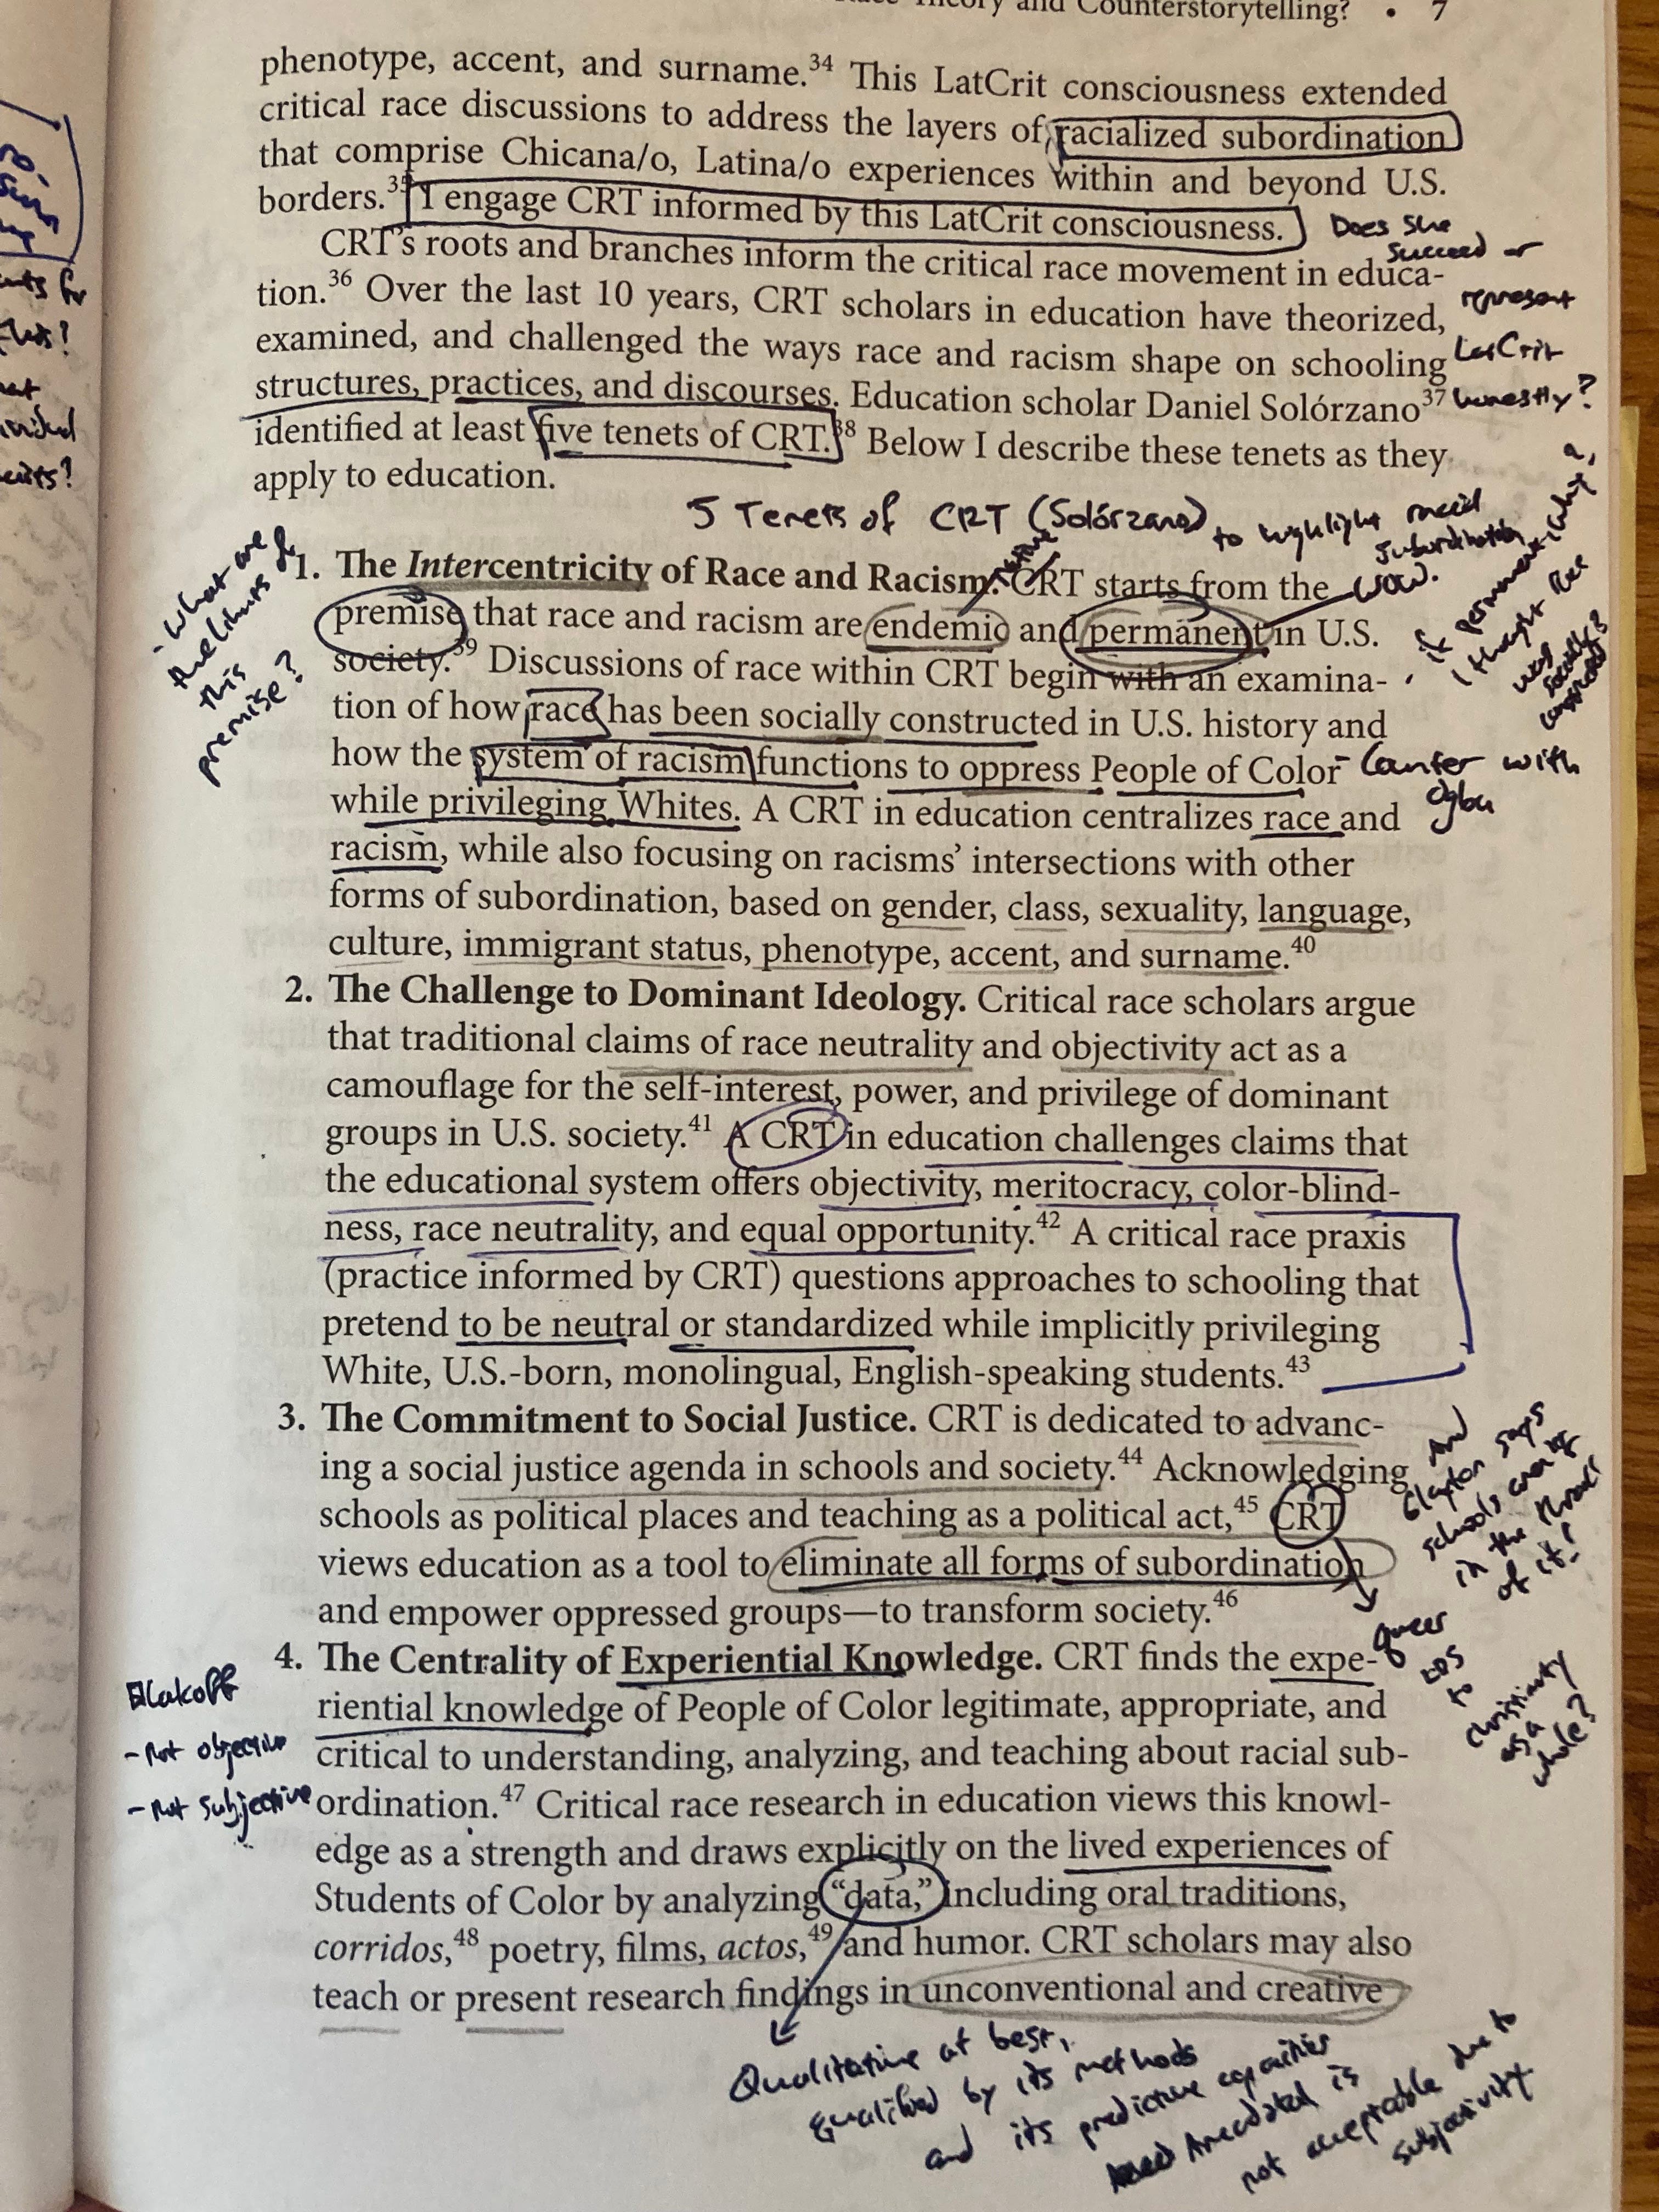 Theory and Counterstorytelling? • 7
phenotype, accent, and surname.34 This LatCrit consciousness extended
critical race discussions to address the layers of racialized subordination
that comprise Chicana/o, Latina/o experiences within and beyond U.S.
borders.35 I engage CRT informed by this LatCrit consciousness.
Does She
succeed or
represent
LatCrit
honestly?
CRT's roots and branches inform the critical race movement in educa-
tion.36 Over the last 10 years, CRT scholars in education have theorized,
examined, and challenged the ways race and racism shape on schooling
structures, practices, and discourses. Education scholar Daniel Solórzano37
identified at least five tenets of CRT.38 Below I describe these tenets as they
apply to education.
5 Tenets of CRT (Solórzano)
to highlight racial
subordination
- What are
the limits of
this
premise?
1. The Intercentricity of Race and Racism. CRT starts from the
premise that race and racism are endemic and permanent in U.S.
society.39 Discussions of race within CRT begin with an examina-
tion of how race has been socially constructed in U.S. history and
how the system of racism functions to oppress People of Color
while privileging Whites. A CRT in education centralizes race and
racism, while also focusing on racisms' intersections with other
forms of subordination, based on gender, class, sexuality, language,
culture, immigrant status, phenotype, accent, and surname.40
wow.
if permanent, why?
I thought race
was
socially
constructed?
- Counter with
Ogbu
2. The Challenge to Dominant Ideology. Critical race scholars argue
that traditional claims of race neutrality and objectivity act as a
camouflage for the self-interest, power, and privilege of dominant
groups in U.S. society.41 A CRT in education challenges claims that
the educational system offers objectivity, meritocracy, color-blind-
ness, race neutrality, and equal opportunity.42 A critical race praxis
(practice informed by CRT) questions approaches to schooling that
pretend to be neutral or standardized while implicitly privileging
White, U.S.-born, monolingual, English-speaking students.43
3. The Commitment to Social Justice. CRT is dedicated to advanc-
ing a social justice agenda in schools and society.44 Acknowledging
schools as political places and teaching as a political act,45 CRT
views education as a tool to eliminate all forms of subordination
and empower oppressed groups—to transform society.46
And
Clayton says
schools
in the
of it!
Queer
to
Christianity
as a
whole?
4. The Centrality of Experiential Knowledge. CRT finds the expe-
riential knowledge of People of Color legitimate, appropriate, and
critical to understanding, analyzing, and teaching about racial sub-
ordination.47 Critical race research in education views this knowl-
edge as a strength and draws explicitly on the lived experiences of
Students of Color by analyzing “data,” including oral traditions,
corridos,48 poetry, films, actos,49 and humor. CRT scholars may also
teach or present research findings in unconventional and creative
Lakoff
- not objective
- not subjective
Qualitative at best,
qualified by its methods
and its predictive capacities
Anecdotal is
not acceptable due to
subjectivity